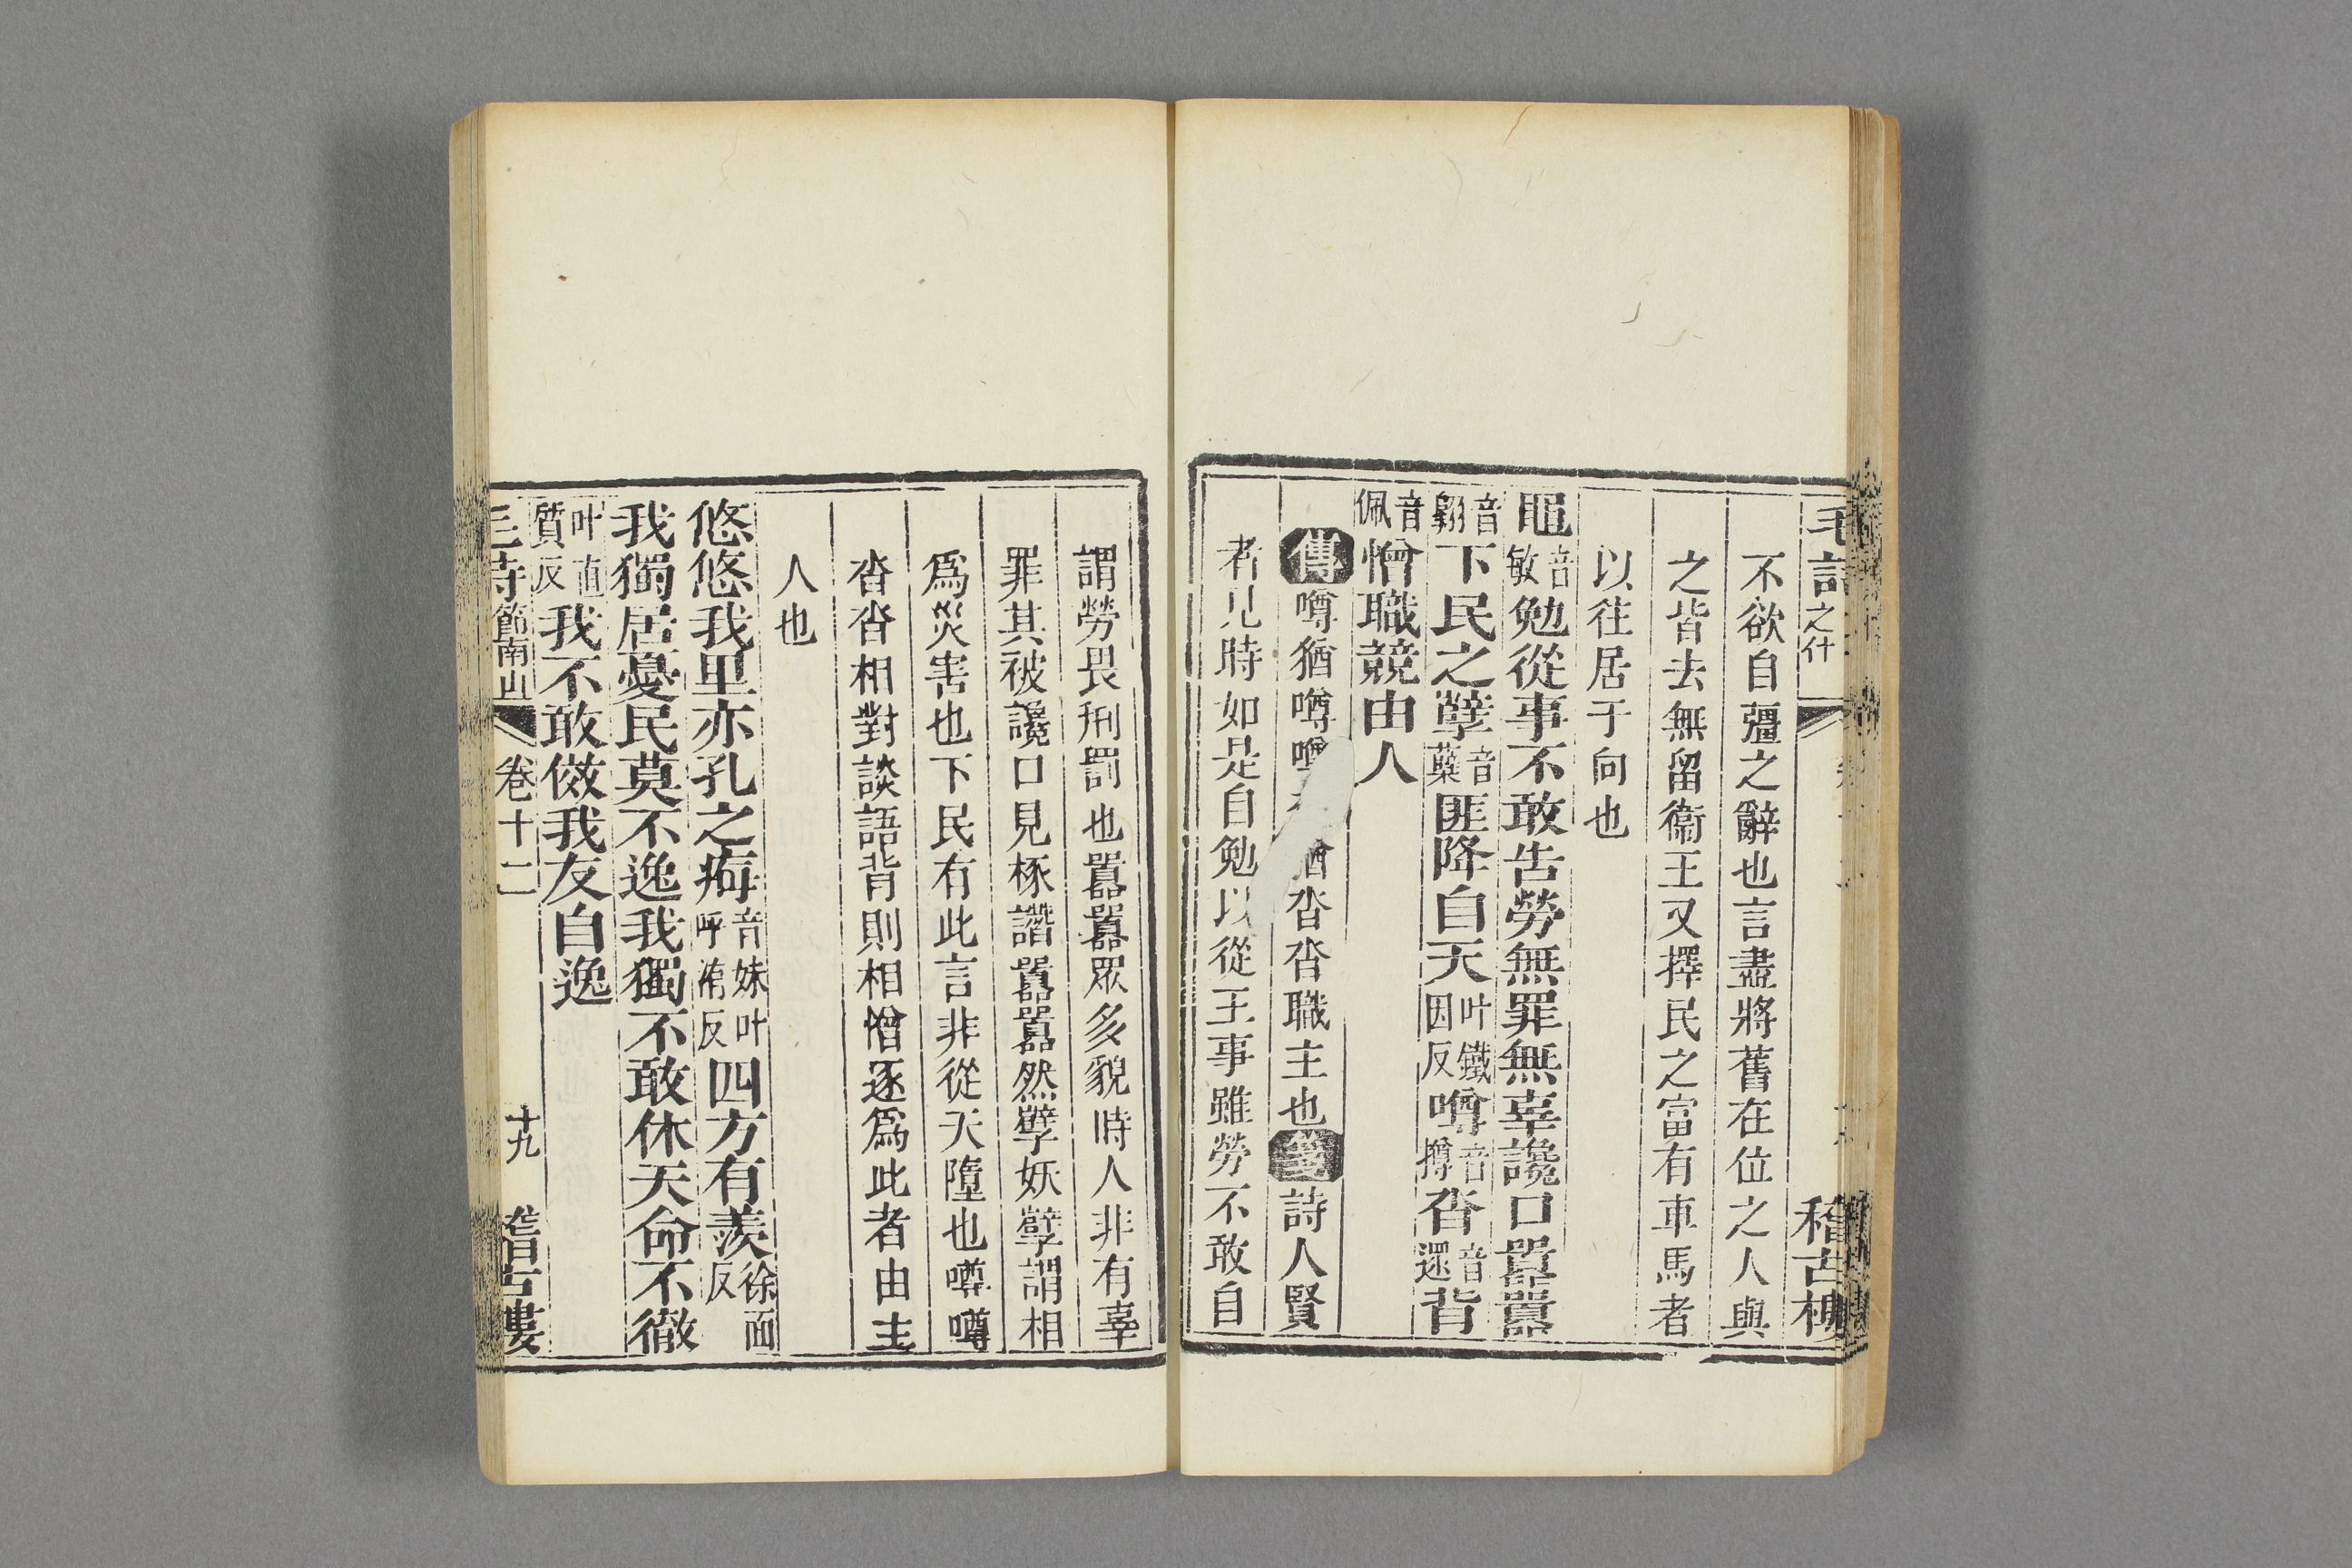 之什
稽古樓
不欲自彊之辭也言盡將舊在位之人與
之皆去無留衞王又擇民之富有車馬者
以往居于向也
黽音敏勉從事不敢告勞無罪無辜讒口囂囂
音翺下民之孽音蘖匪降自天叶鐵因反噂音撙沓音遝背
音佩憎職競由人
傳噂猶噂噂沓猶沓沓職主也箋詩人賢
者見時如是自勉以從王事雖勞不敢自
謂勞畏刑罰也囂囂眾多貌時人非有辜
罪其被讒口見椓譖囂囂然孽妖孽謂相
爲災害也下民有此言非從天墮也噂噂
沓沓相對談語背則相憎逐爲此者由主
人也
悠悠我里亦孔之痗音妹叶呼洧反四方有羨徐面反
我獨居憂民莫不逸我獨不敢休天命不徹
叶直質反我不敢傚我友自逸
毛詩節南山 卷十二 十九 稽古樓